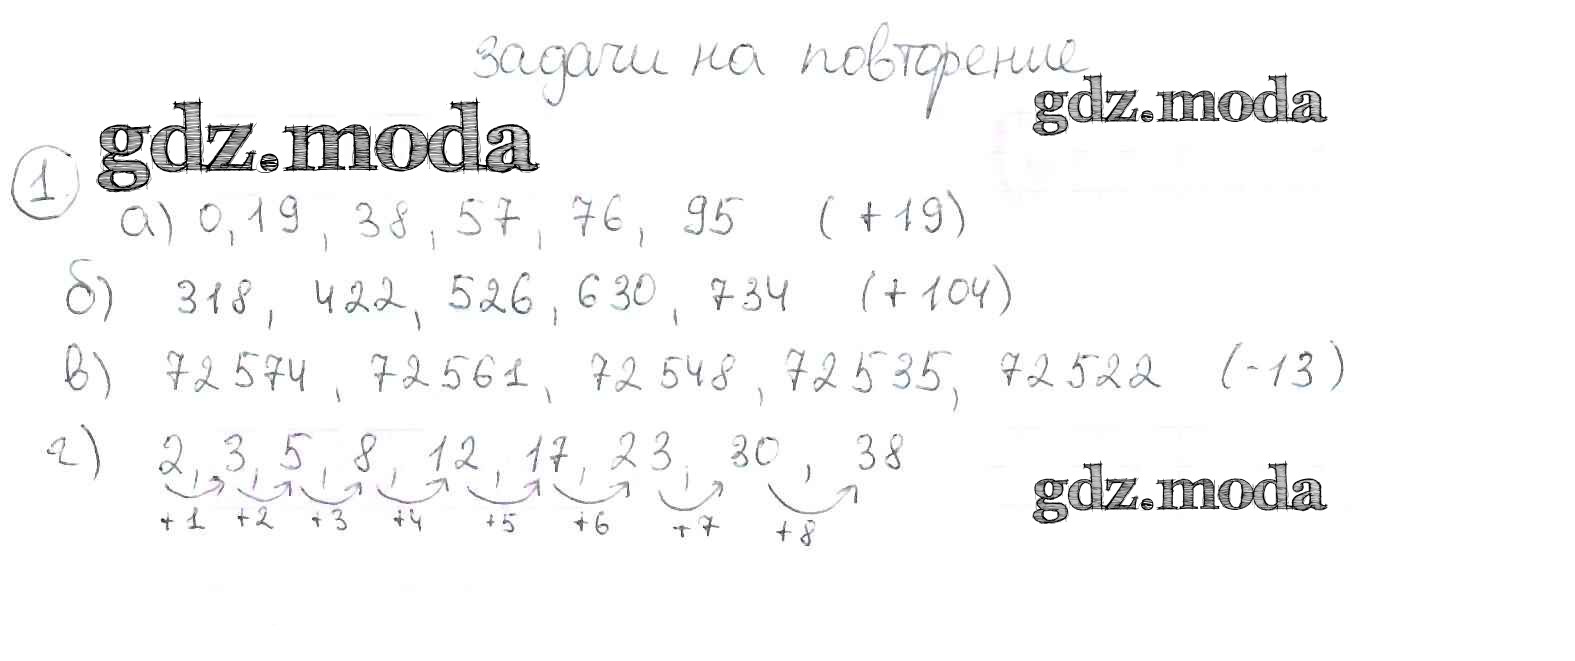 задачи на повторение
gdz.moda
gdz.moda
1
а) 0, 19, 38, 57, 76, 95 (+19)
б) 318, 422, 526, 630, 734 (+104)
в) 72574, 72561, 72548, 72535, 72522 (-13)
г) 2, 3, 5, 8, 12, 17, 23, 30, 38
gdz.moda
+1 +2 +3 +4 +5 +6 +7 +8